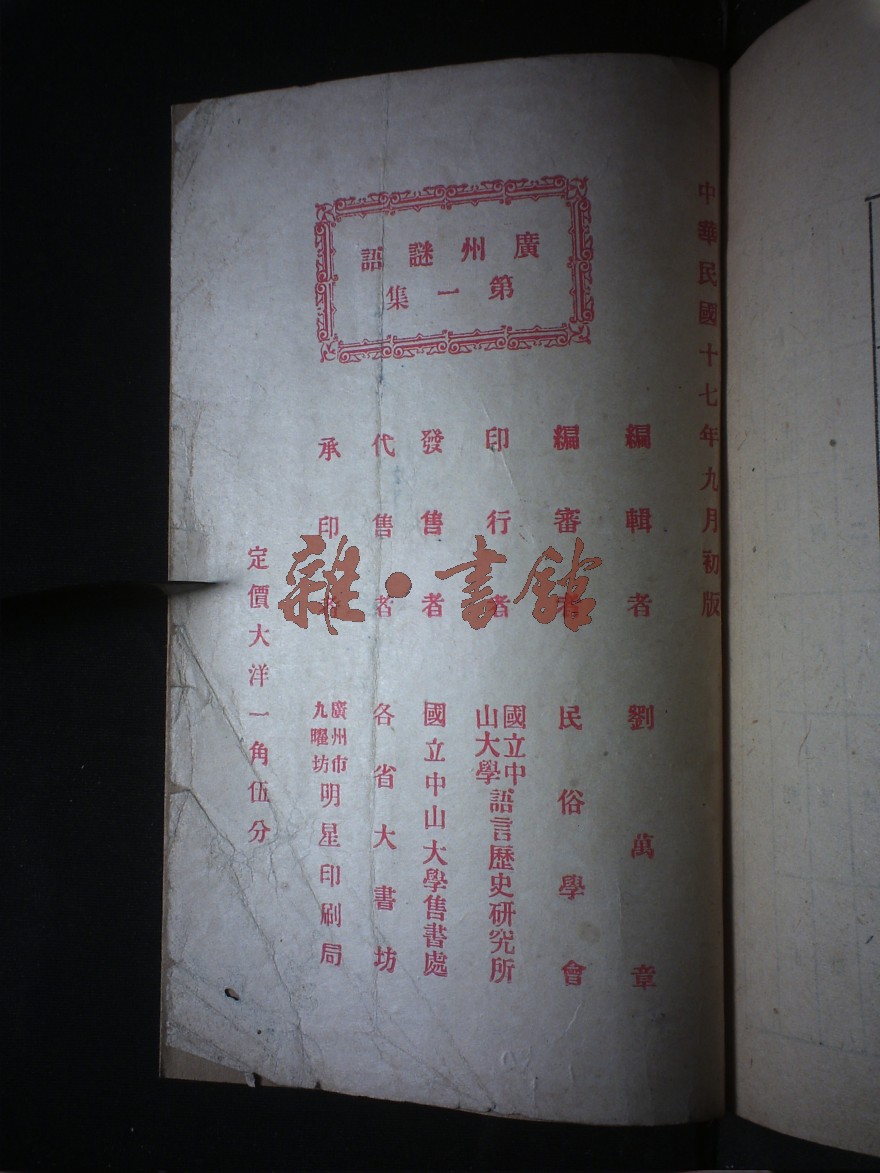 中華民國十七年九月初版
廣州謎語
第一集
編輯者 劉萬章
編審者 民俗學會
印行者 國立中山大學語言歷史研究所
發售者 國立中山大學售書處
代售者 各省大書坊
承印者 廣州市九曜坊明星印刷局
定價大洋一角伍分
雜·書館